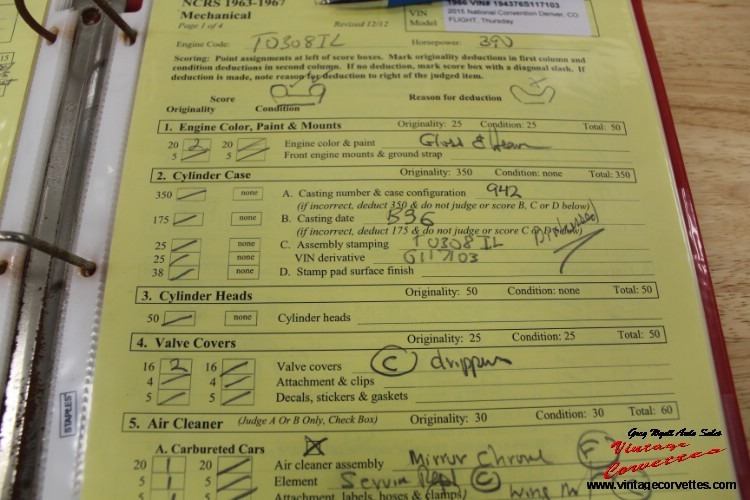 NCRS 1963-1967
Mechanical
Page 1 of 4
Revised 12/12
VIN
Model
1966 VIN# 194376S117103
2015 National Convention Denver, CO
FLIGHT, Thursday
Engine Code: T0308IL Horsepower: 390
Scoring: Point assignments at left of score boxes. Mark originality deductions in first column and
condition deductions in second column. If no deduction, mark score box with a diagonal slash. If
deduction is made, note reason for deduction to right of the judged item.
Score
Originality Condition Reason for deduction
1. Engine Color, Paint & Mounts Originality: 25 Condition: 25 Total: 50
20 2 20 Engine color & paint Gloss &
5 5 Front engine mounts & ground strap
2. Cylinder Case Originality: 350 Condition: none Total: 350
350 none A. Casting number & case configuration 942
(if incorrect, deduct 350 & do not judge or score B, C or D below)
175 none B. Casting date B36
(if incorrect, deduct 175 & do not judge or score C or D below)
25 none C. Assembly stamping T0308IL
25 none VIN derivative 6117103
38 none D. Stamp pad surface finish
3. Cylinder Heads Originality: 50 Condition: none Total: 50
50 none Cylinder heads
4. Valve Covers Originality: 25 Condition: 25 Total: 50
16 2 16 Valve covers C drippers
4 4 Attachment & clips
5 5 Decals, stickers & gaskets
5. Air Cleaner (Judge A Or B Only, Check Box) Originality: 30 Condition: 30 Total: 60
A. Carbureted Cars
20 1 20 Air cleaner assembly Mirror Chrome F
5 1 5 Element Service Repl C
Attachment, labels, hoses & clamps
STAPLES
15
Greg Wyatt Auto Sales
Vintage
Corvettes
www.vintagecorvettes.com